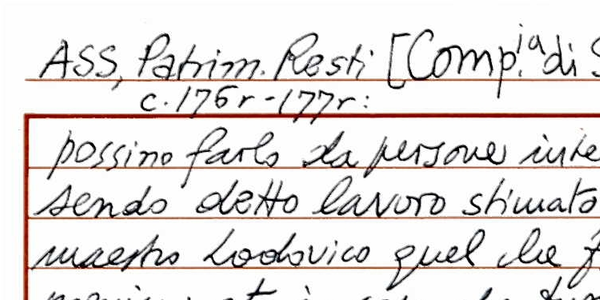 ASS, Patrim. Resti [Comp.ia di S
c. 176r-177r:
possino farlo da persone inte
sendo detto lavoro stimato
maestro Lodovico quel che f